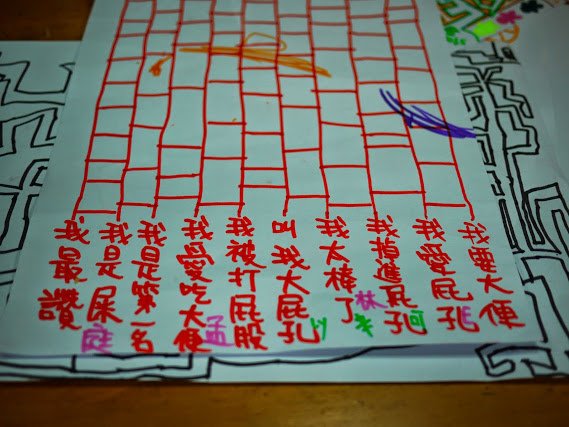 我要大便
我愛屁孔
我掉進屁孔
可
我太棒了
林
叫我大屁孔
我被打屁股
我愛吃大便
孟
我是第一名
我是屎
庭
我最讚